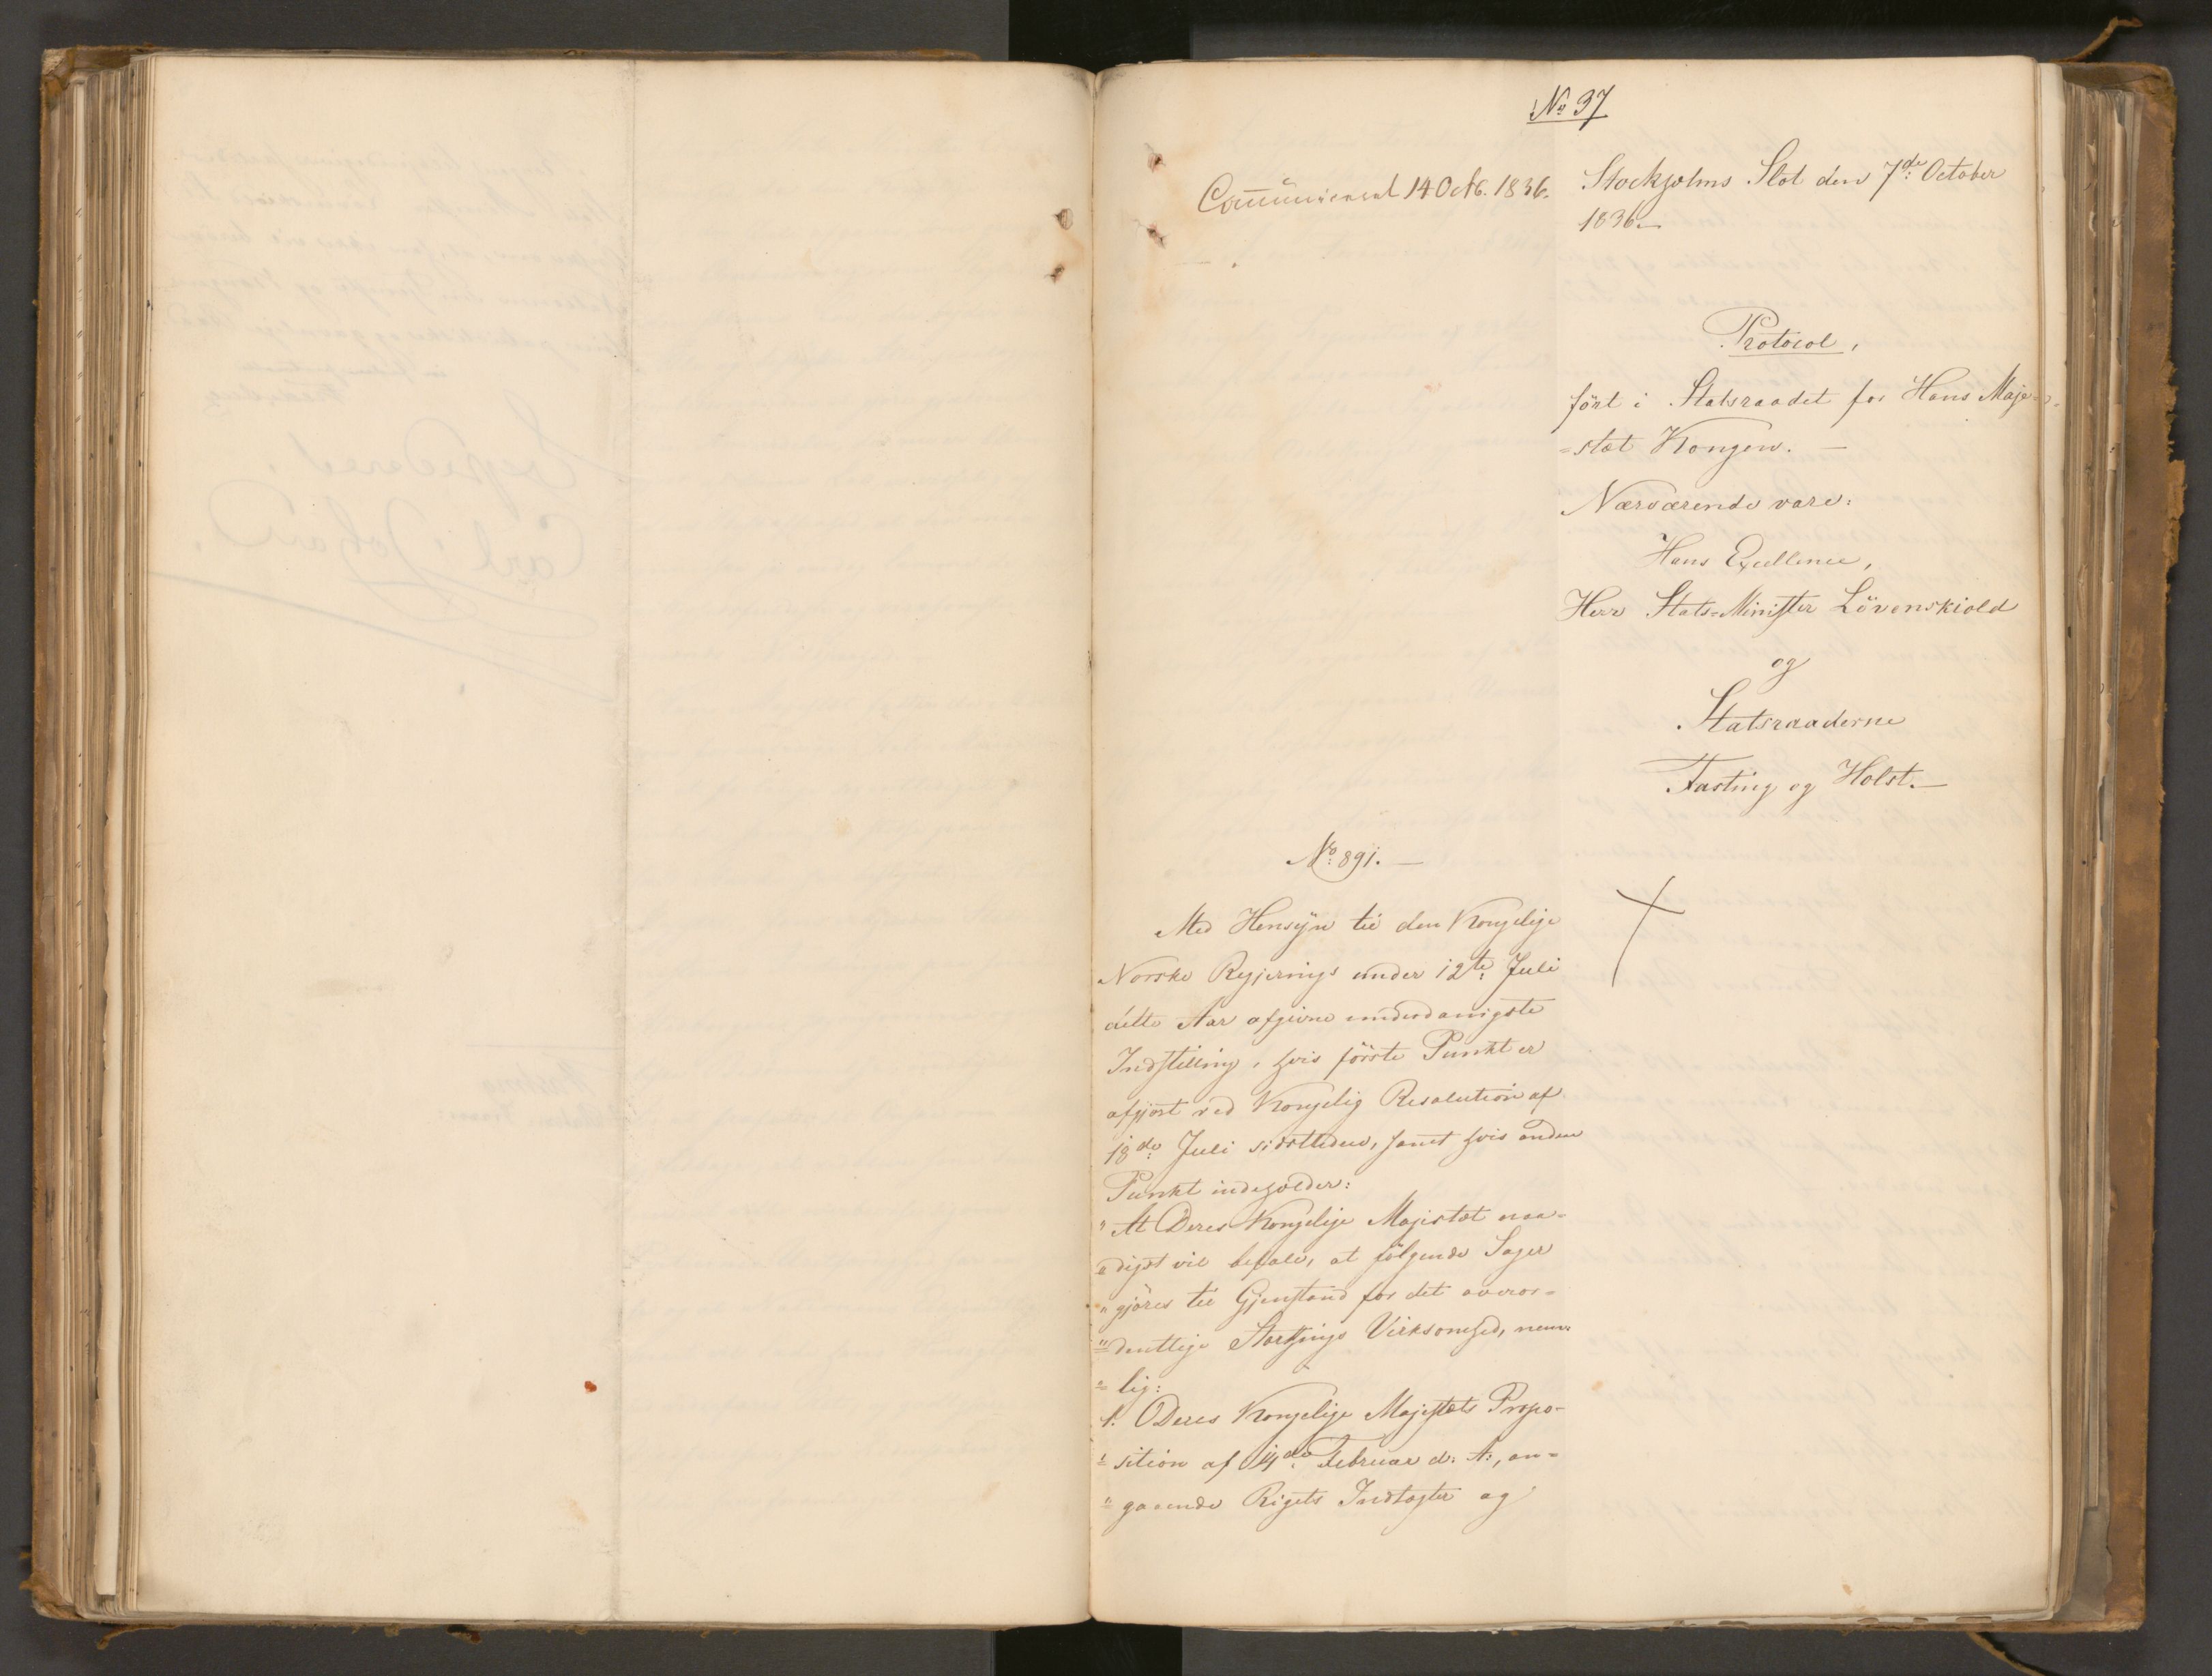 No 37
Communiceret 14 Octb. 1836.
Stockholms Slot den 7de October
1836.—
Protocol,
fört i Statsraadet for Hans Maje-
=stæt Kongen. —
Nærværende vare:
Hans Excellence,
Herr Stats=Minister Lövenskiold
og
Statsraaderne
Fasting og Holst.—
No. 891. —
Med Hensyn til den Kongelige
Norske Regjerings under 12te Juli
dette Aar afgivne underdanigste
Indstilling, hvis förste Punkt er
afgjort ved Kongelig Resolution af
18de Juli sidstleden, samt hvis anden
Punkt indeholder:
"At Deres Kongelige Majestæt naa-
"digst vil befale, at fölgende Sager
"gjöres til Gjenstand for det overor=
"dentlige Storthings Virksomhed, nem-
"lig:
1. Deres Kongelige Majestæts Propo-
"sition af 4de Februar d. A:, an=
"gaaende Rigets Indtægter og